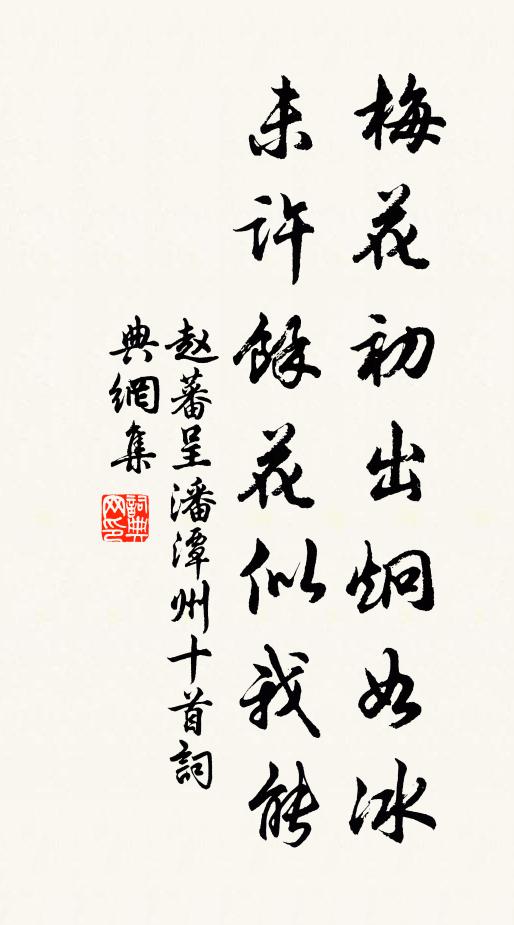 梅花初出炯如冰
未許餘花似我能
赵蕃呈潘潭州十首詞
典網集
詞典
网印